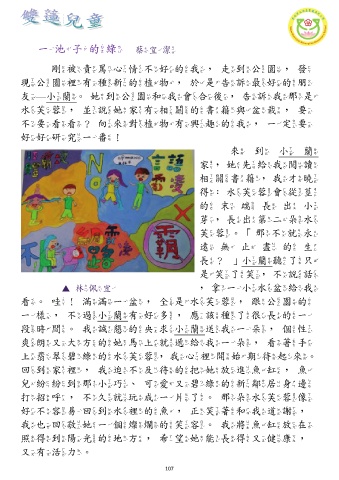 雙蓮兒童
一池子的綠　蔡宜潔
剛被責罵心情不好的我，走到公園，發
現公園裡有種新的植物，於是告訴最好的朋
友—小蘭。她到公園和我會合後，告訴我那是
水芙蓉，並說她家有相關的書籍與盆栽，要
不要看看？向來對植物有興趣的我，一定要
好好研究一番！
來到小蘭
家，她先給我閱讀
相關書籍，我才曉
得：水芙蓉會從莖
的末端長出小
芽，長出第二朵水
芙蓉。「那不就永
遠無止盡的生
長？」小蘭聽了只
是笑了笑，不說話
，拿一小水盆給我
▲林佩宜
看。哇！滿滿一盆，全是水芙蓉，跟公園的
一樣，不過小蘭有好多，應該種了很長的一
段時間。我誠懇的央求小蘭送我一朵，個性
爽朗又大方的她馬上就遞給我一朵，看著手
上翡翠碧綠的水芙蓉，我心裡開始期待起來。
回到家裡，我迫不及待的把她放進魚缸，魚
兒紛紛到那小巧、可愛又碧綠的新鄰居身邊
打招呼，不久就玩成一片了。那朵水芙蓉像
好不容易回到水裡的魚，正笑著和我道謝，
我也回敬她一個燦爛的笑容。我將魚缸放在
照得到陽光的地方，希望她能長得又健康，
又有活力。
107